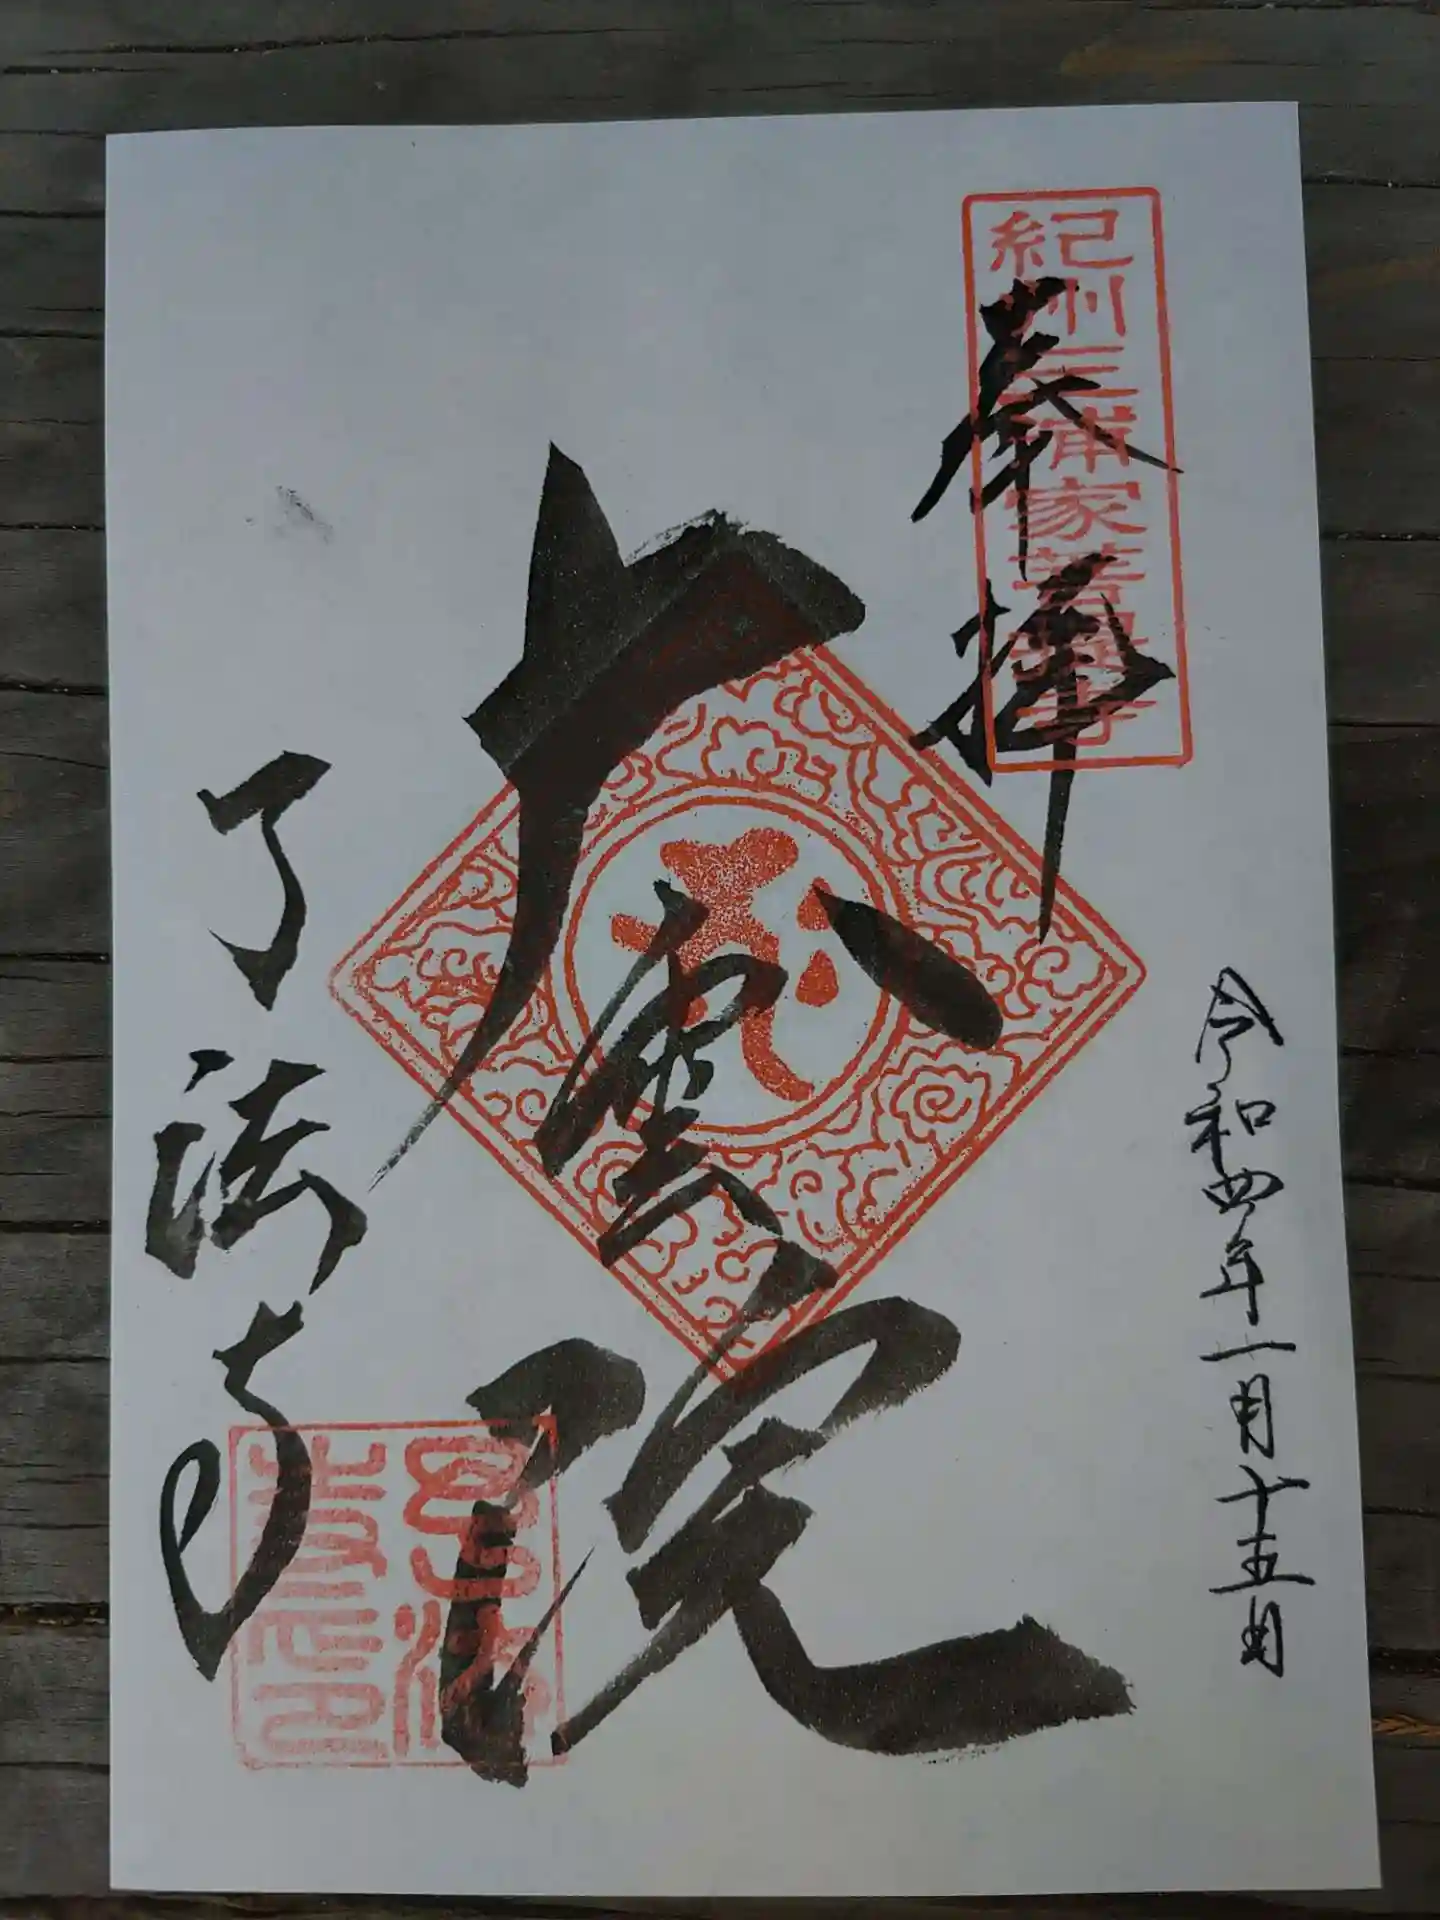 紀州三浦家菩提寺
奉拝
令和四年一月十五日
大雲院
了法寺